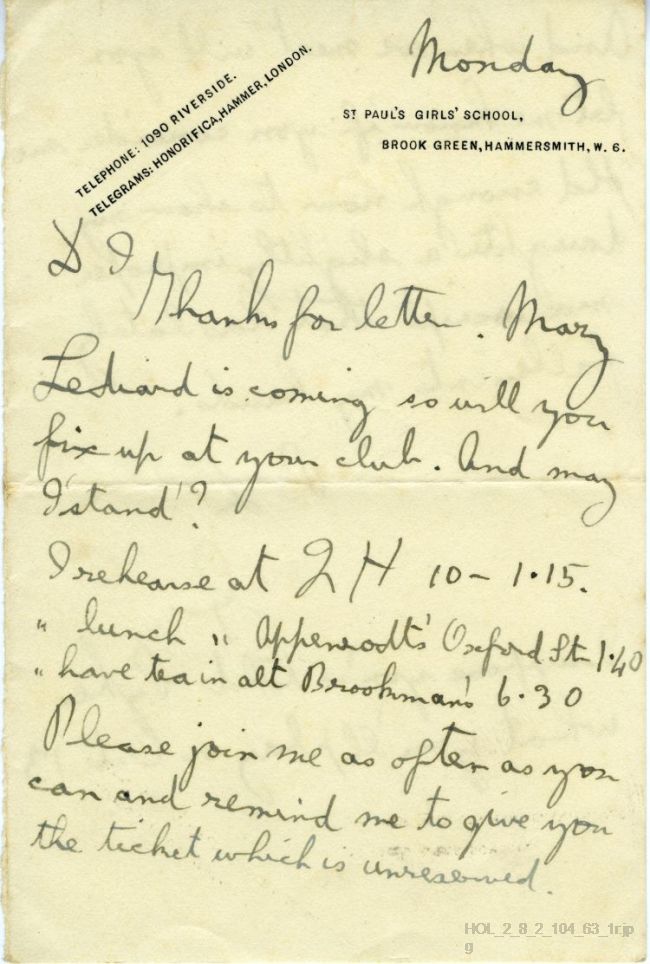 Monday
TELEPHONE: 1090 RIVERSIDE.
TELEGRAMS: HONORIFICA, HAMMER, LONDON.
ST PAUL'S GIRLS' SCHOOL,
BROOK GREEN, HAMMERSMITH, W. 6.
D I
Thanks for letter. Mary
Lediard is coming so will you
fix up at your club. And may
I 'stand'?
I rehearse at QH 10 - 1.15.
" lunch " Appenrodts' Oxford St 1.40
" have tea in alt Brookman's 6.30
Please join me as often as you
can and remind me to give you
the ticket which is unreserved.
HOL_2_8_2_104_63_1r.jp
g